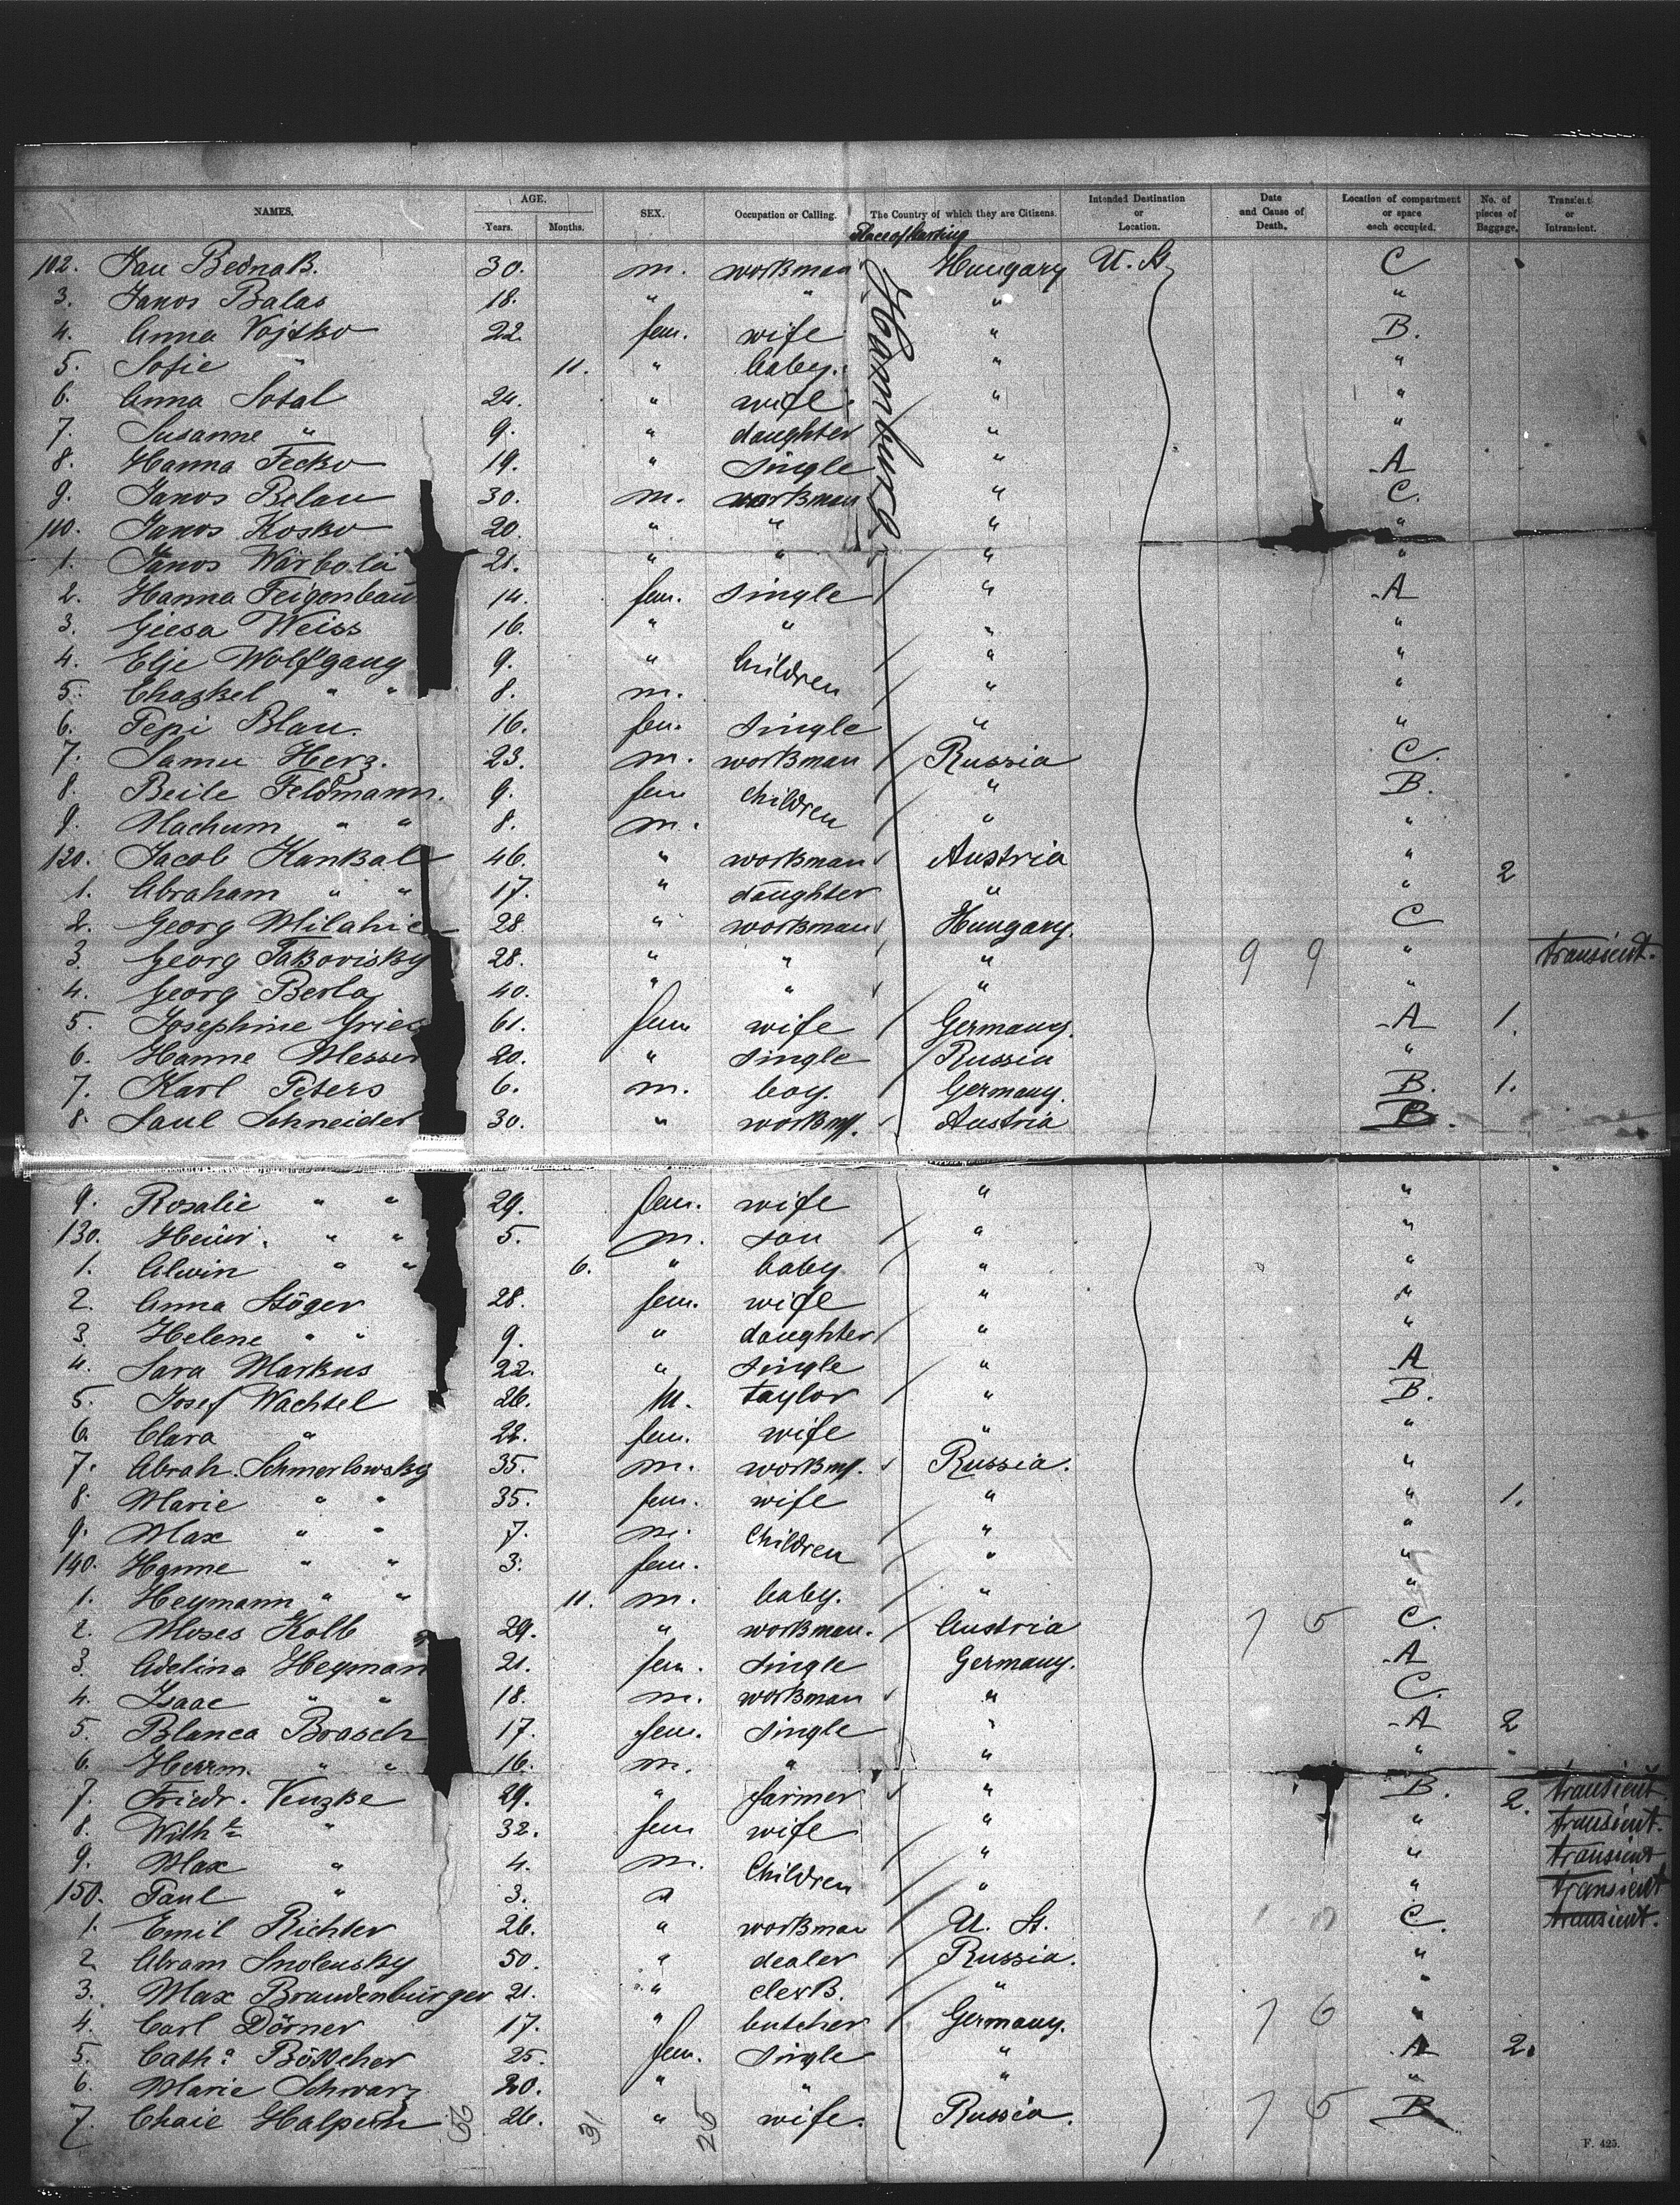 NAMES. AGE. Years. Months. SEX. Occupation or Calling. The Country of which they are Citizens. Intended Destination or Location. Date and Cause of Death. Location of compartment or space each occupied. No. of pieces of Baggage. Transient or Intransient.
Place of starting
Hamburg
102. Jan Bednak. 30. m. workman Hungary U. St. C
3. Janos Balas 18. " " " "
4. Anna Vojtko 22. fem. wife " B.
5. Sofie " 11. " baby. " "
6. Anna Sotal 24. " wife " "
7. Susanne " 9. " daughter " "
8. Hanna Fecko 19. " single " A
9. Janos Belau 30. m. workman " C.
110. Janos Kosko 20. " " " "
1. Janos Warbola 21. " " " "
2. Hanna Feigenbau 14. fem. single " A
3. Giesa Weiss 16. " " " "
4. Elje Wolfgang 9. " Children " "
5. Chaskel " " 8. m. " "
6. Pepi Blau. 16. fem. single " "
7. Samu Herz. 23. m. workman Russia C.
8. Beile Feldmann. 9. fem children " B.
9. Nachum " " 8. m. " "
120. Jacob Kankal 46. " workman Austria " 2
1. Abraham " " 17. " daughter " "
2. Georg Milahi 28 " workman Hungary. C
3. Georg Jakovisky 28. " " " 9 9 " transient.
4. Georg Berla 40. " " " "
5. Josephine Gries 61. fem wife Germany. A 1.
6. Hanne Messer 20. " single Russia "
7. Karl Peters 6. m. boy. Germany. B. 1.
8. Saul Schneider 30. " workm. Austria B.
9. Rosalie " " 29. fem. wife " "
130. Heinr. " " 5. m. son " "
1. Alwin " " 6. " baby " "
2. Anna Stöger 28. fem. wife " "
3. Helene " " 9. " daughter " "
4. Sara Markus 22. " single " A
5. Josef Wachtel 26. M. taylor " B.
6. Clara " 22. fem. wife " "
7. Abrah. Schmerlowsky 35. m. workm. Russia. "
8. Marie " " 35. fem. wife " " 1.
9. Max " " 7. m. Children " "
140. Hanne " " 3. fem. " "
1. Heymann " " 11. m. baby. " "
2. Moses Kolb 29. " workman. Austria 7 5 C.
3. Adelina Heyman 21. fem. single Germany. A
4. Isaac " " 18. m. workman " C.
5. Blanca Brasch 17. fem. single " A 2
6. Herrm. " " 16. m. " " " "
7. Friedr. Venzke 29. " farmer " B. 2. transient
8. Wilh. " 32. fem wife " " transient.
9. Max " 4. m. Children " " transient
150. Paul " 3. " " " transient
1. Emil Richter 26. " workman U. St. C. transient.
2 Abram Smolensky 50. " dealer Russia. "
3. Max Brandenburger 21. " clerk. " "
4. Carl Dörner 17. " butcher Germany. 7 6 "
5. Cath. Böttcher 25. fem. single " A 2.
6. Marie Schwarz 20. " " " "
7. Chaie Halpern 26. " wife. Russia. 7 5 B
56 31 26
F. 425.